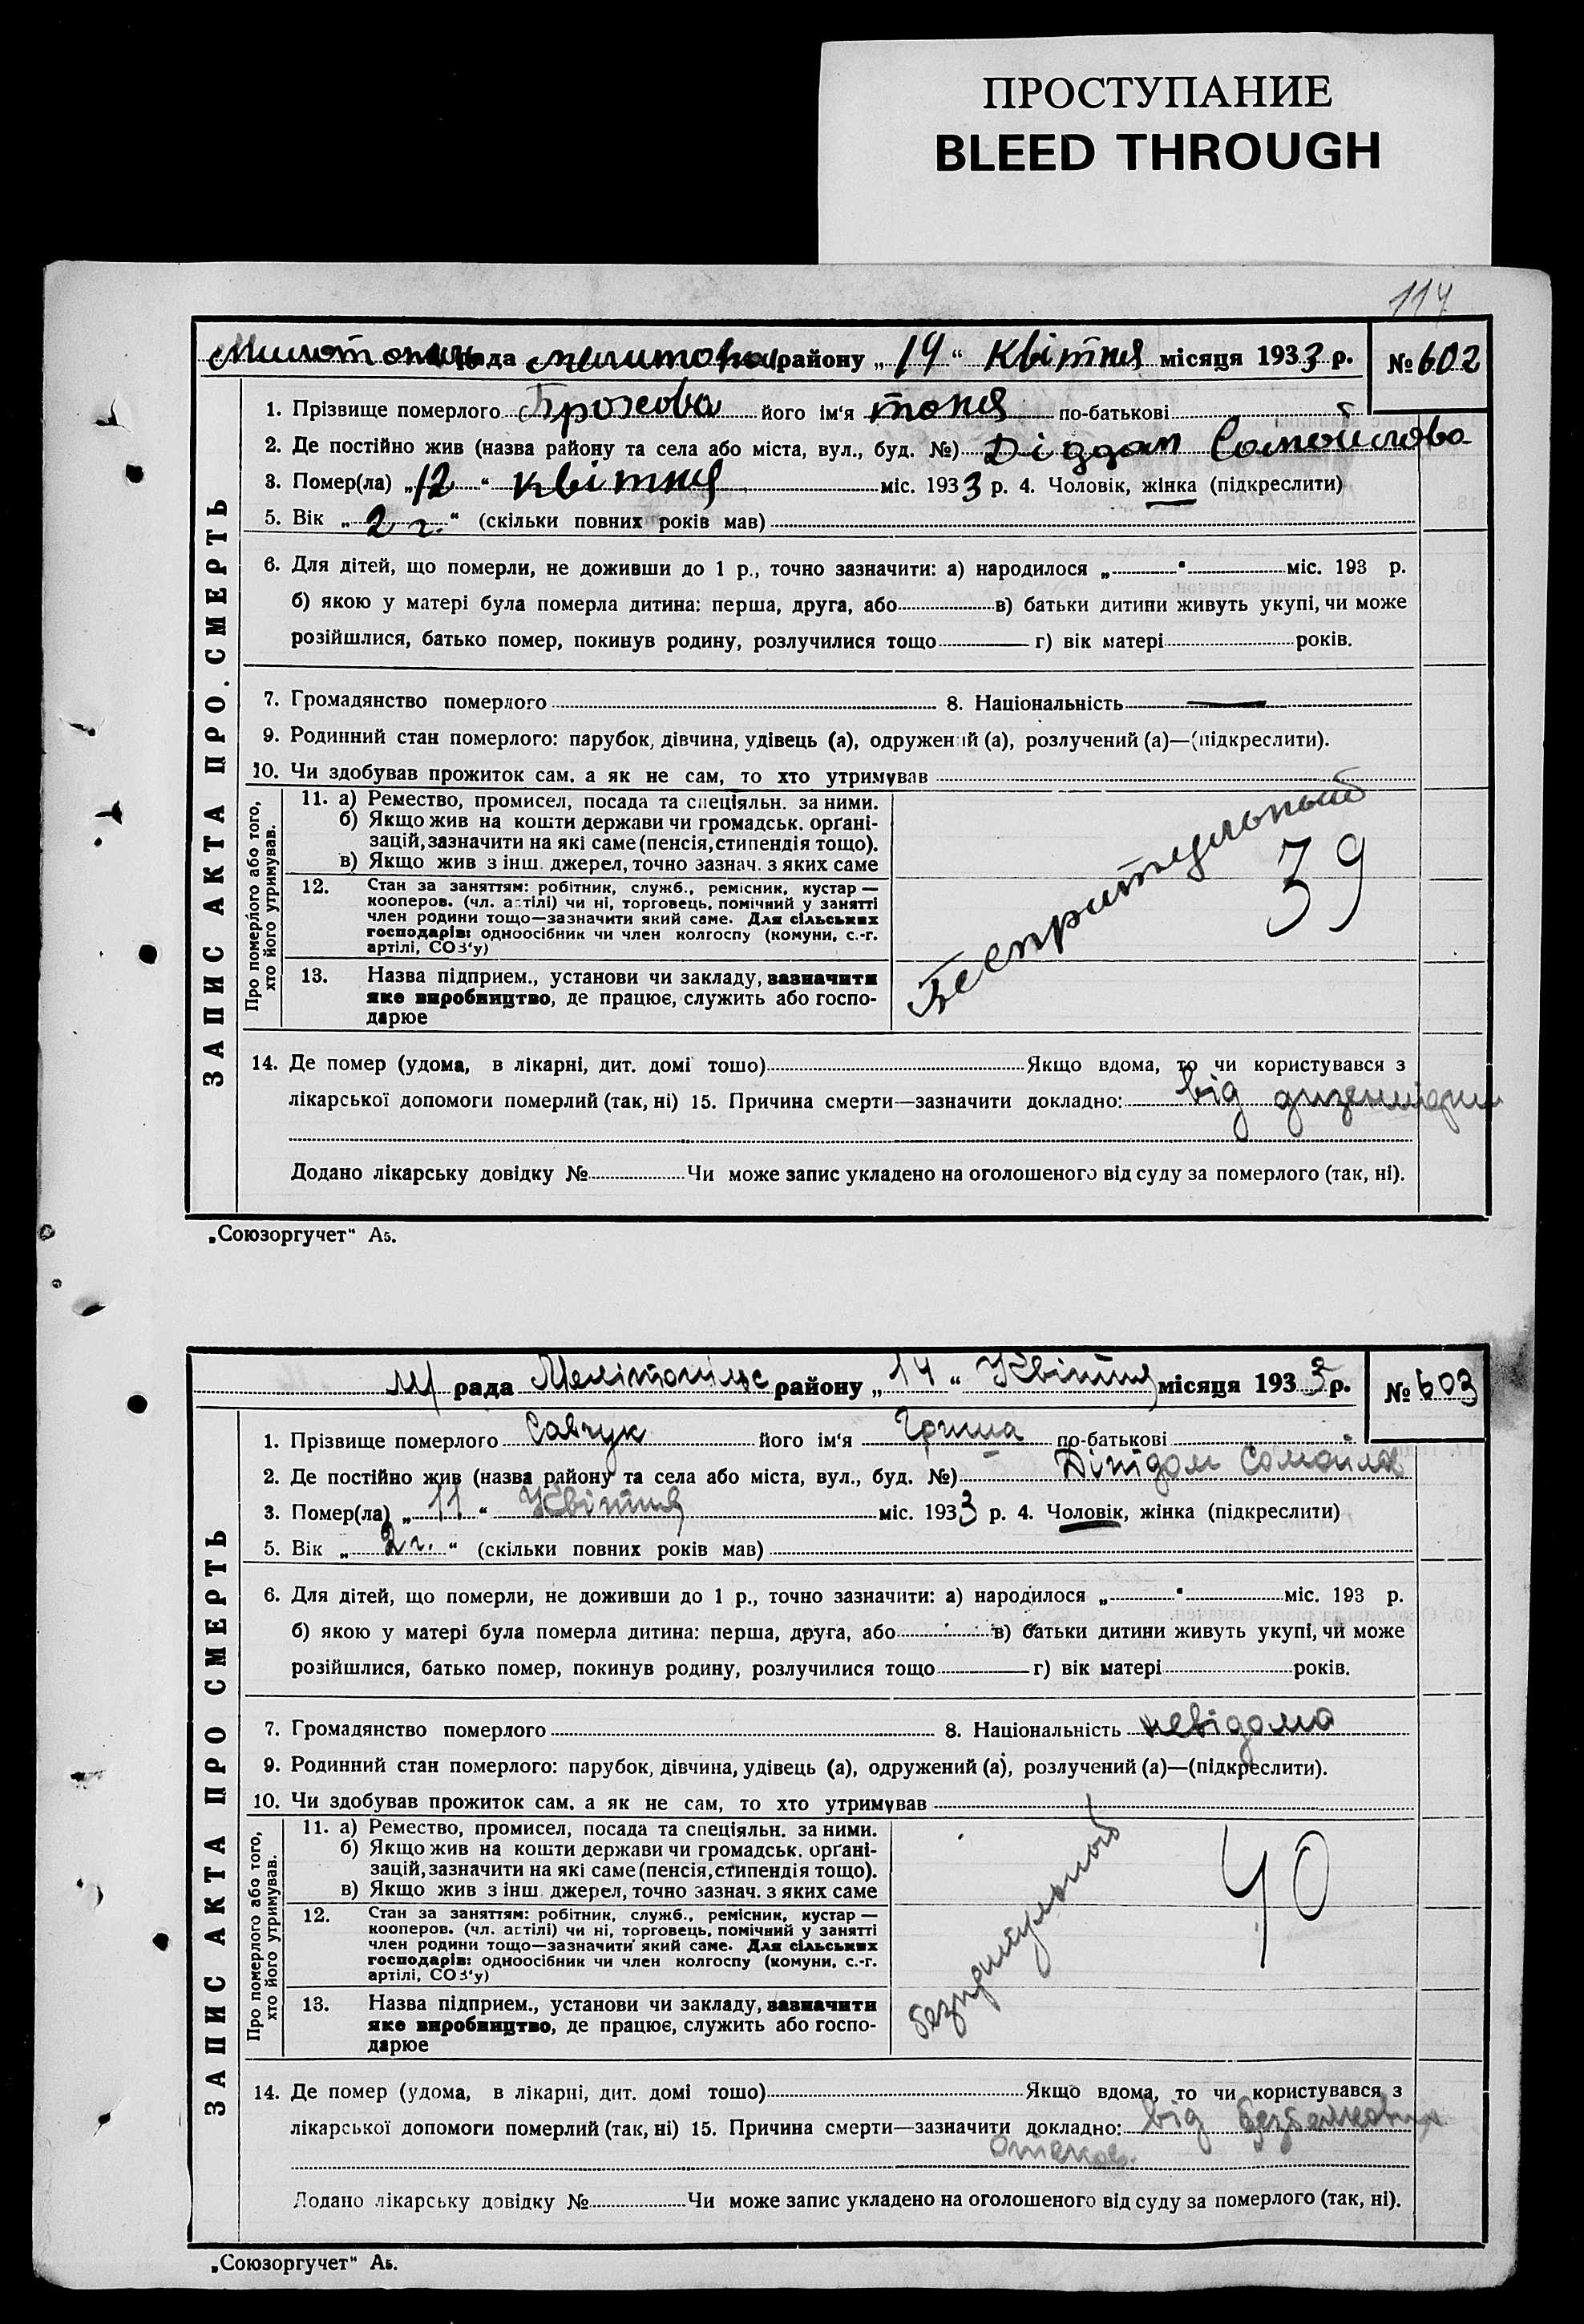 ПРОСТУПАНИЕ
BLEED THROUGH
114
рада району „14“ Квітня місяця 1933 р. № 602
ЗАПИС АКТА ПРО СМЕРТЬ
1. Прізвище померлого його ім‘я Тоня по-батькові
2. Де постійно жив (назва району та села або міста, вул., буд. №) Діддом Самойлова
3. Помер(ла) „12“ квітня міс. 1933 р. 4. Чоловік, жінка (підкреслити)
5. Вік „2 г.“ (скільки повних років мав)
6. Для дітей, що померли, не доживши до 1 р., точно зазначити: а) народилося „ “ міс. 193 р.
б) якою у матері була померла дитина: перша, друга, або в) батьки дитини живуть укупі, чи може
розійшлися, батько помер, покинув родину, розлучилися тощо г) вік матері років.
7. Громадянство померлого 8. Національність —
9. Родинний стан померлого: парубок, дівчина, удівець (а), одружений (а), розлучений (а)—(підкреслити).
10. Чи здобував прожиток сам, а як не сам, то хто утримував
Про померлого або того, хто його утримував.
11. а) Ремество, промисел, посада та спеціяльн. за ними.
б) Якщо жив на кошти держави чи громадськ. орґані-
зацій, зазначити на які саме (пенсія, стипендія тощо).
в) Якщо жив з інш. джерел, точно зазнач. з яких саме
12. Стан за заняттям: робітник, служб., ремісник, кустар —
кооперов. (чл. артілі) чи ні, торговець, помічний у занятті
член родини тощо—зазначити який саме. Для сільських
господарів: одноосібник чи член колгоспу (комуни, с.-г.
артілі, СОЗ‘у)
13. Назва підприєм., установи чи закладу, зазначити
яке виробництво, де працює, служить або госпо-
дарює
39
14. Де помер (удома, в лікарні, дит. домі тошо) Якщо вдома, то чи користувався з
лікарської допомоги померлий (так, ні) 15. Причина смерти—зазначити докладно: від дизентерии
Додано лікарську довідку № Чи може запис укладено на оголошеного від суду за померлого (так, ні).
„Союзоргучет“ А5.
М рада Мелітопільс району „14“ Квітня місяця 1933 р. № 603
ЗАПИС АКТА ПРО СМЕРТЬ
1. Прізвище померлого Савчук його ім‘я Гриша по-батькові
2. Де постійно жив (назва району та села або міста, вул., буд. №) Самойлов
3. Помер(ла) „11“ Квітня міс. 1933 р. 4. Чоловік, жінка (підкреслити)
5. Вік „2 г.“ (скільки повних років мав)
6. Для дітей, що померли, не доживши до 1 р., точно зазначити: а) народилося „ “ міс. 193 р.
б) якою у матері була померла дитина: перша, друга, або в) батьки дитини живуть укупі, чи може
розійшлися, батько помер, покинув родину, розлучилися тощо г) вік матері років.
7. Громадянство померлого 8. Національність невідома
9. Родинний стан померлого: парубок, дівчина, удівець (а), одружений (а), розлучений (а)—(підкреслити).
10. Чи здобував прожиток сам, а як не сам, то хто утримував
Про померлого або того, хто його утримував.
11. а) Ремество, промисел, посада та спеціяльн. за ними.
б) Якщо жив на кошти держави чи громадськ. орґані-
зацій, зазначити на які саме (пенсія, стипендія тощо).
в) Якщо жив з інш. джерел, точно зазнач. з яких саме
12. Стан за заняттям: робітник, служб., ремісник, кустар —
кооперов. (чл. артілі) чи ні, торговець, помічний у занятті
член родини тощо—зазначити який саме. Для сільських
господарів: одноосібник чи член колгоспу (комуни, с.-г.
артілі, СОЗ‘у)
13. Назва підприєм., установи чи закладу, зазначити
яке виробництво, де працює, служить або госпо-
дарює
40
14. Де помер (удома, в лікарні, дит. домі тошо) Якщо вдома, то чи користувався з
лікарської допомоги померлий (так, ні) 15. Причина смерти—зазначити докладно: від безбелковых
отеков.
Додано лікарську довідку № Чи може запис укладено на оголошеного від суду за померлого (так, ні).
„Союзоргучет“ А5.